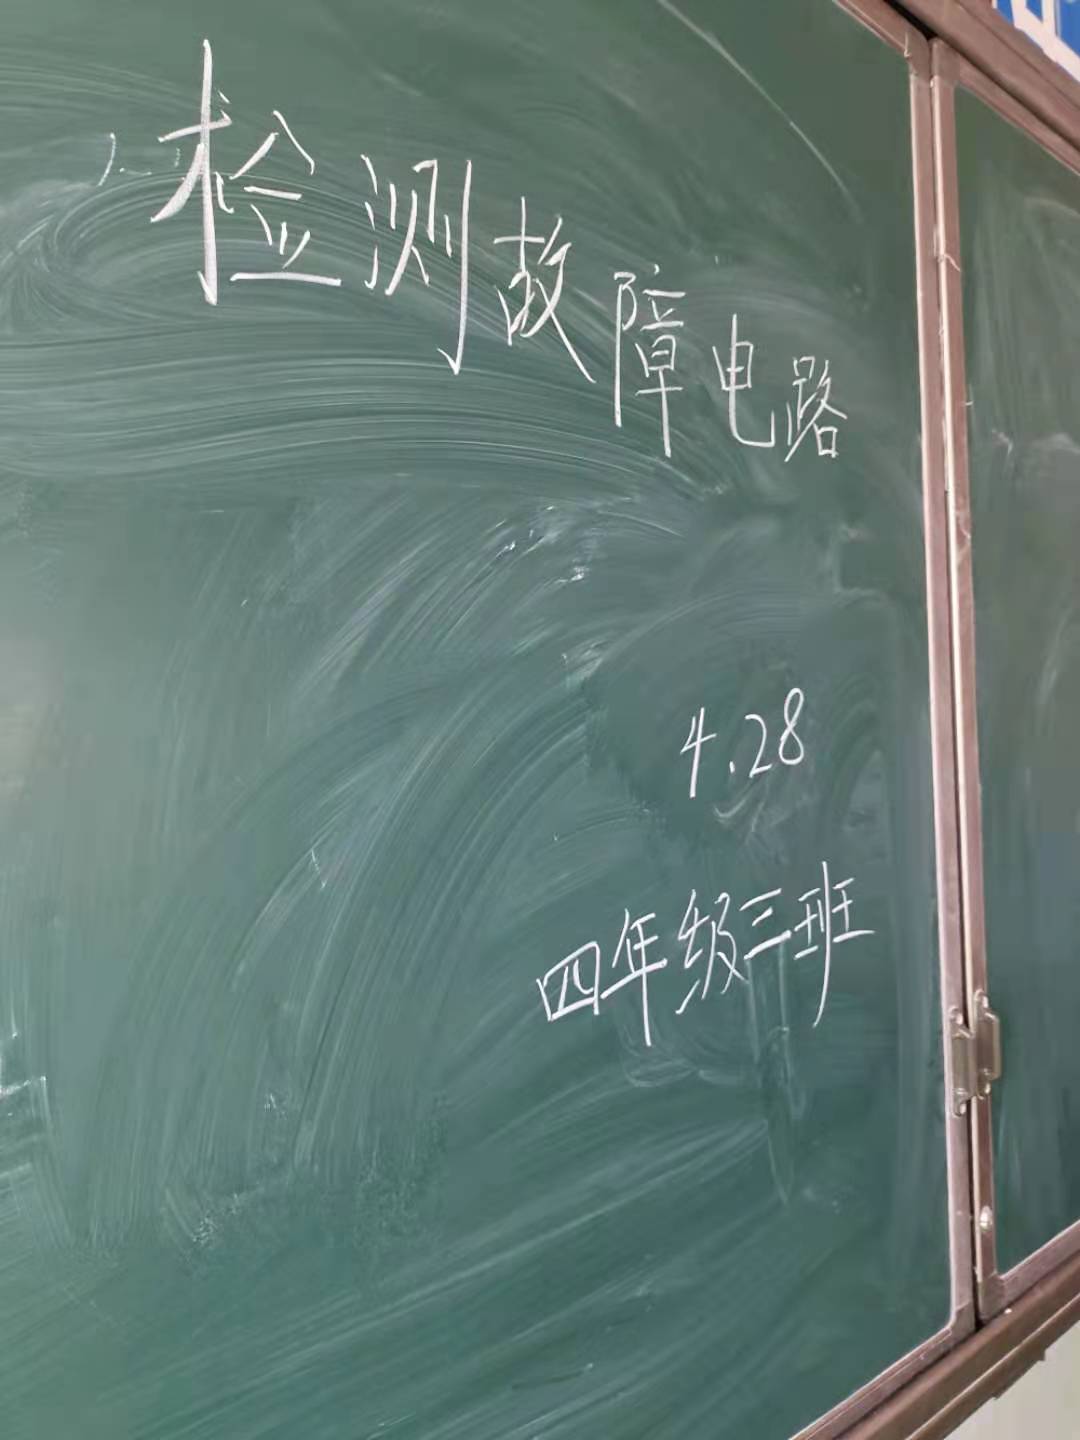 检测故障电路
4.28
四年级三班